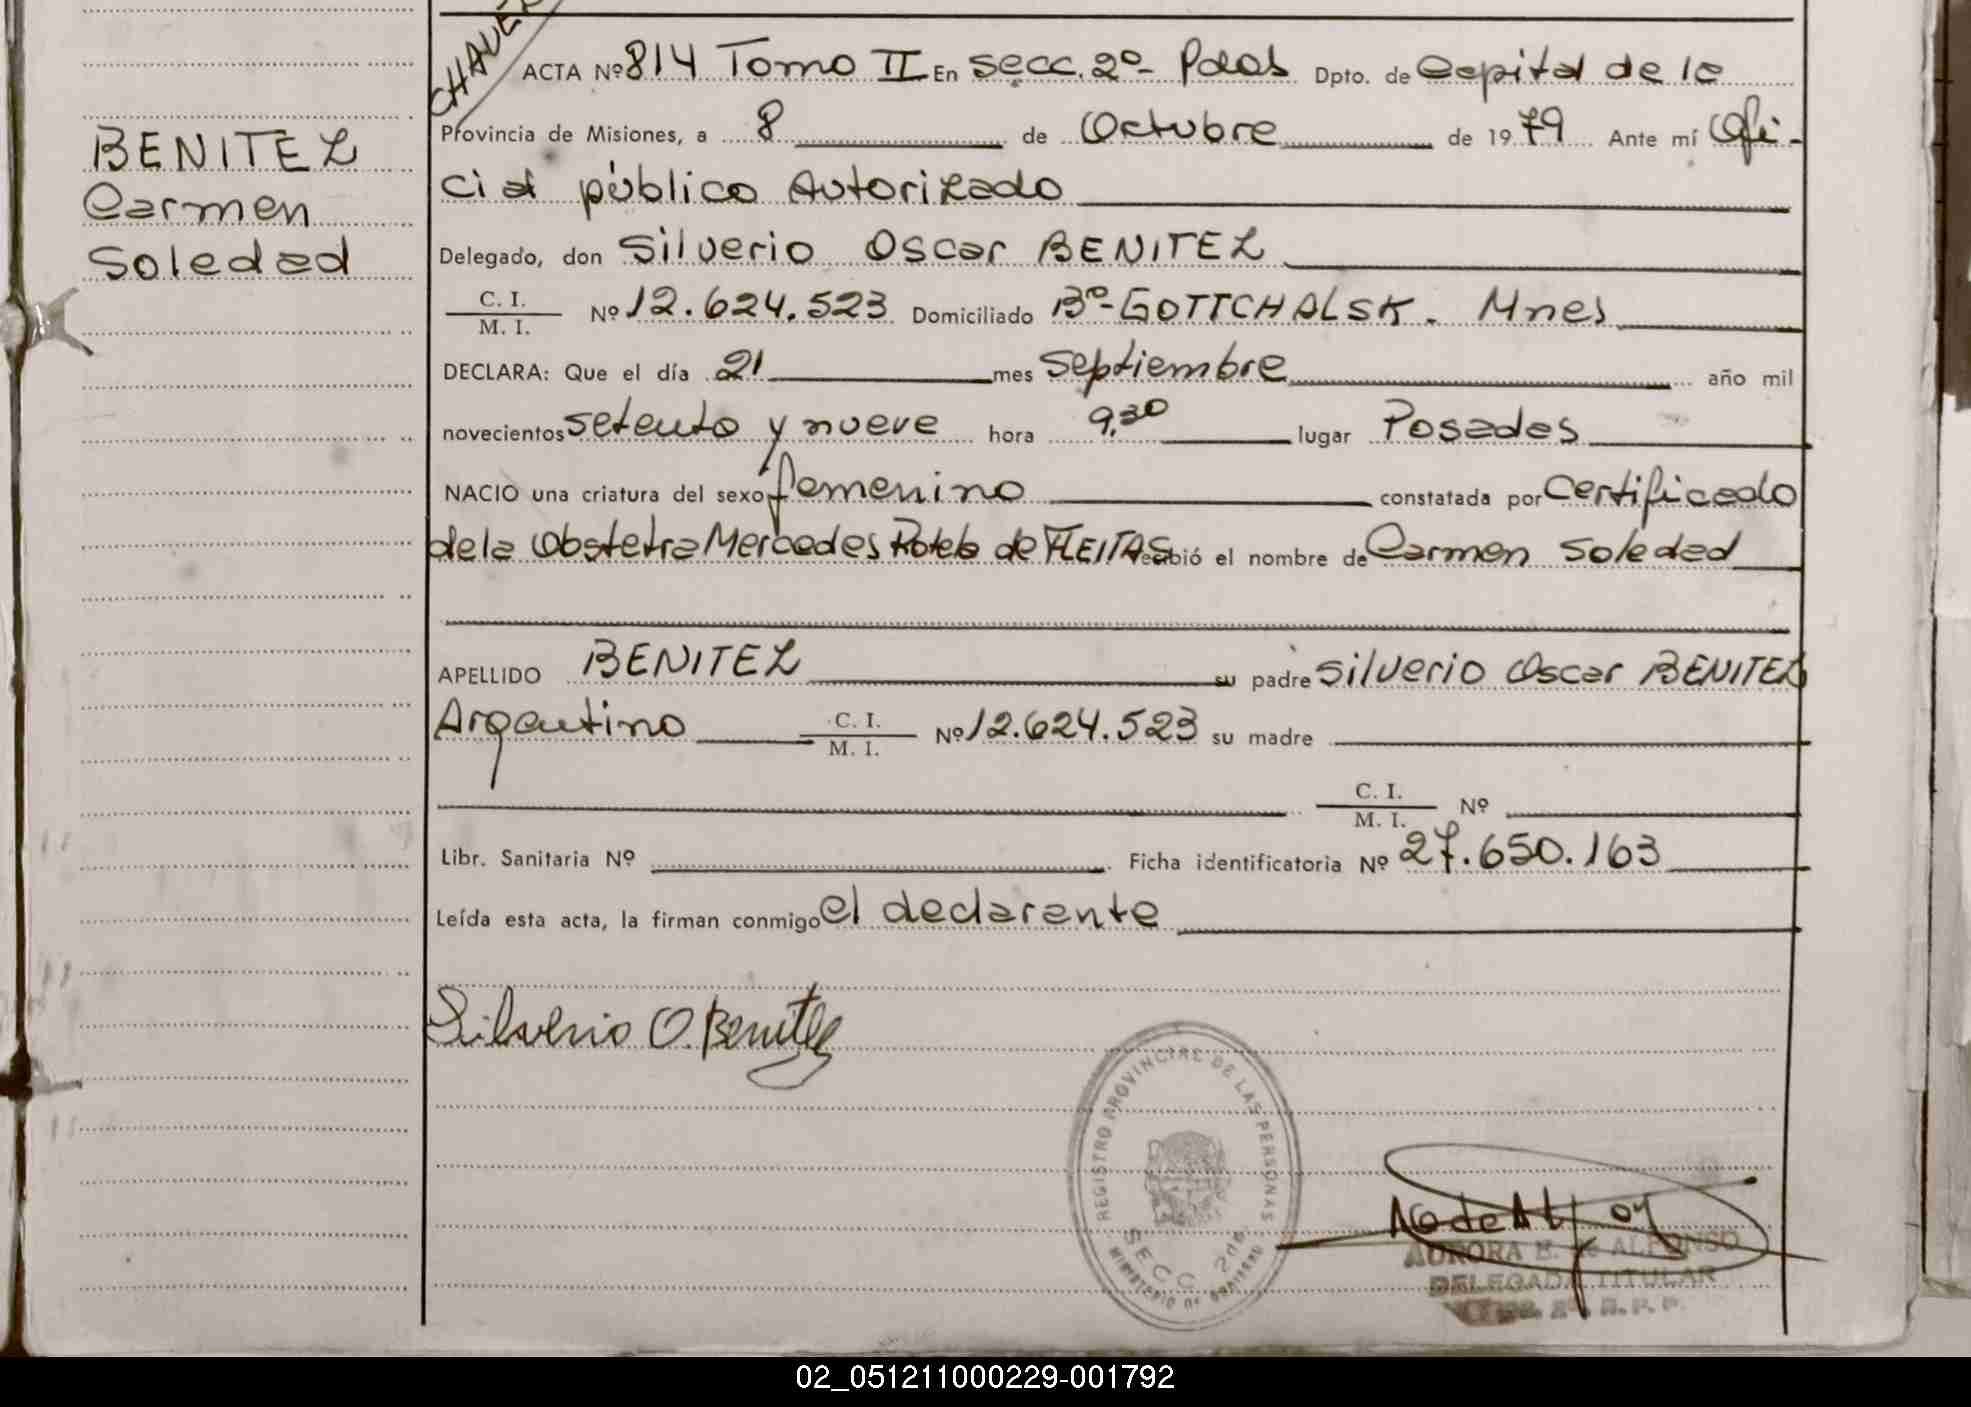 CHAVE
ACTA Nº 814 Tomo II En secc. 2º- Pdas Dpto. de Capital de la
BENITEZ
Carmen
Soledad
Provincia de Misiones, a 8 de Octubre de 1979 Ante mí Ofi-
cial público Autorizado
Delegado, don Silverio Oscar BENITEZ
C. I.
M. I. Nº 12.624.523 Domiciliado Bº-GOTTCHALSK. Mnes
DECLARA: Que el día 21 mes septiembre año mil
novecientos setenta y nueve hora 9,30 lugar Posadas
NACIO una criatura del sexo femenino constatada por certificado
de la Obstetra Mercedes Rotela de FLEITAS recibió el nombre de Carmen Soledad
APELLIDO BENITEZ su padre Silverio Oscar BENITEZ
Argentino C. I.
M. I. Nº 12.624.523 su madre
C. I.
M. I. Nº
Libr. Sanitaria Nº Ficha identificatoria Nº 27.650.163
Leída esta acta, la firman conmigo el declarante
Silverio O. Benitez
REGISTRO PROVINCIAL DE LAS PERSONAS
SECC 2da
MINISTERIO DE GOBIERNO
AURORA E. de ALFONSO
DELEGADA TITULAR
R. P. P.
02_051211000229-001792